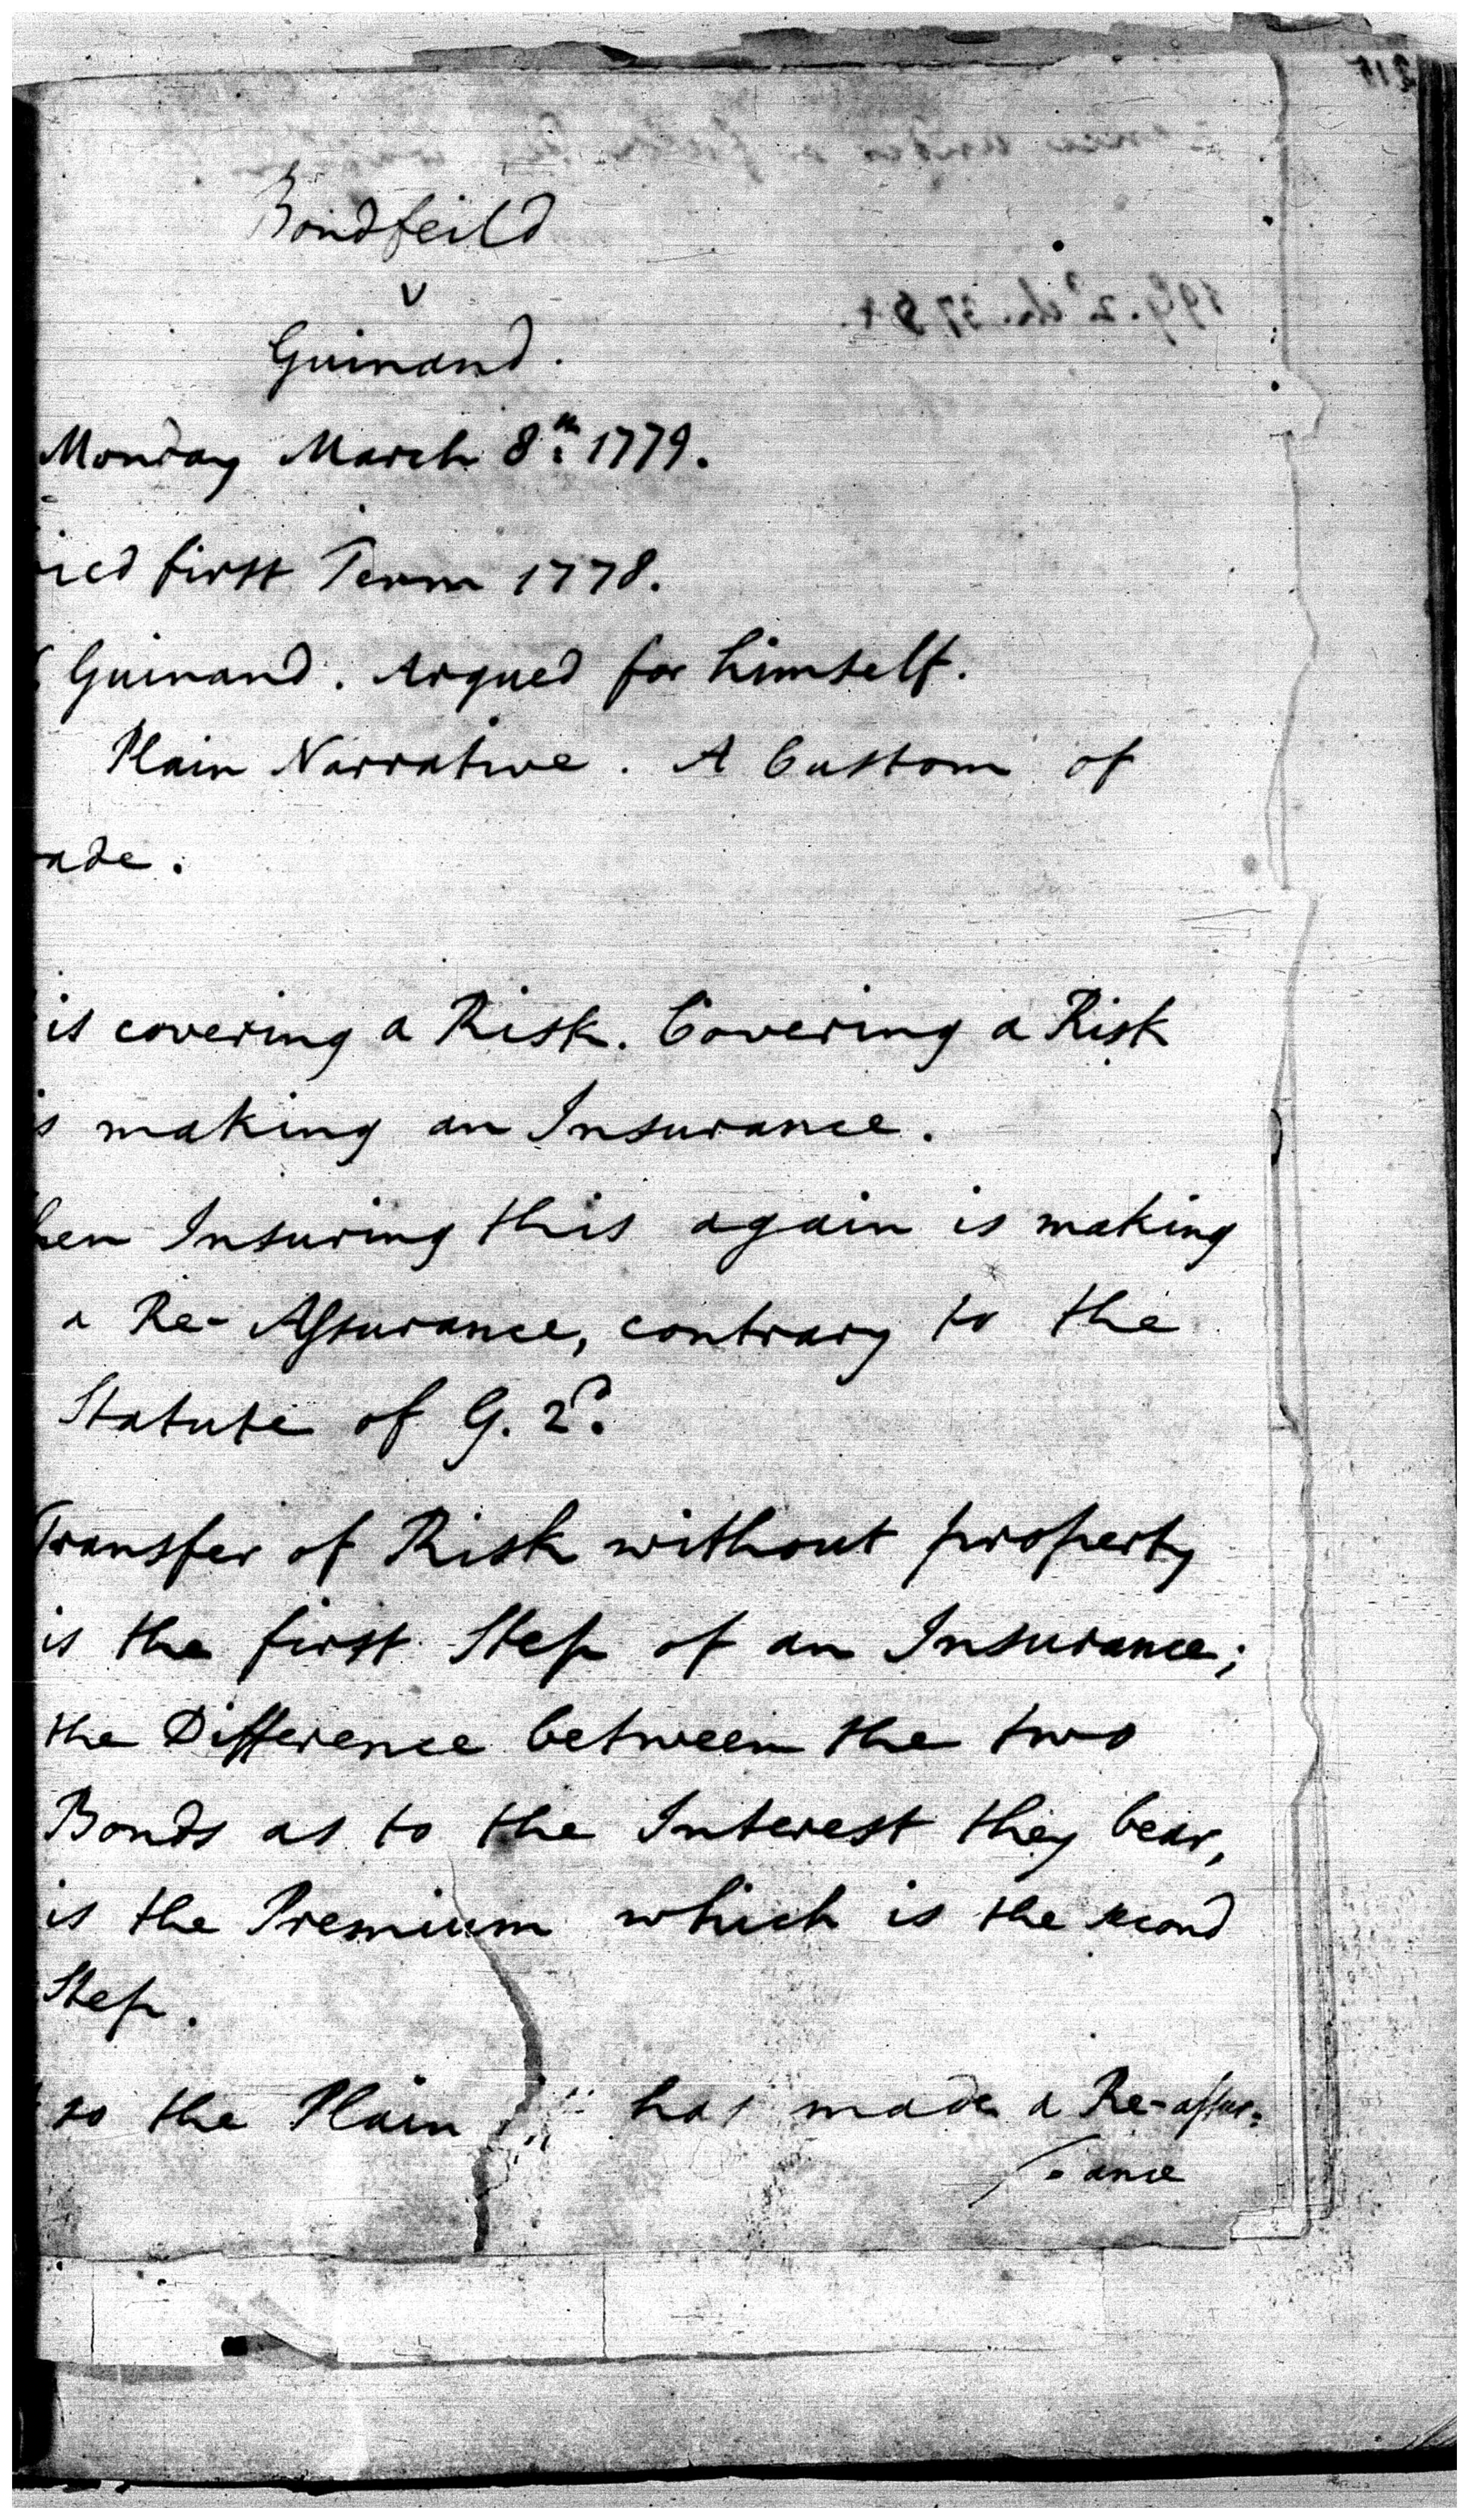 Bondfeild
v
Guinand.
Monday March 8th. 1779.
first Term 1778.
Guinand. Argued for himself.
Plain Narrative. A Custom of
ade.
is covering a Risk. Covering a Risk
making an Insurance.
hen Insuring this again is making
a Re-Assurance, contrary to the
Statute of G. 2d.
Transfer of Risk without property
is the first Step of an Insurance;
the Difference between the two
Bonds as to the Interest they bear,
is the Premium which is the second
Step.
so the Plain has made a Re-assur=
=ance